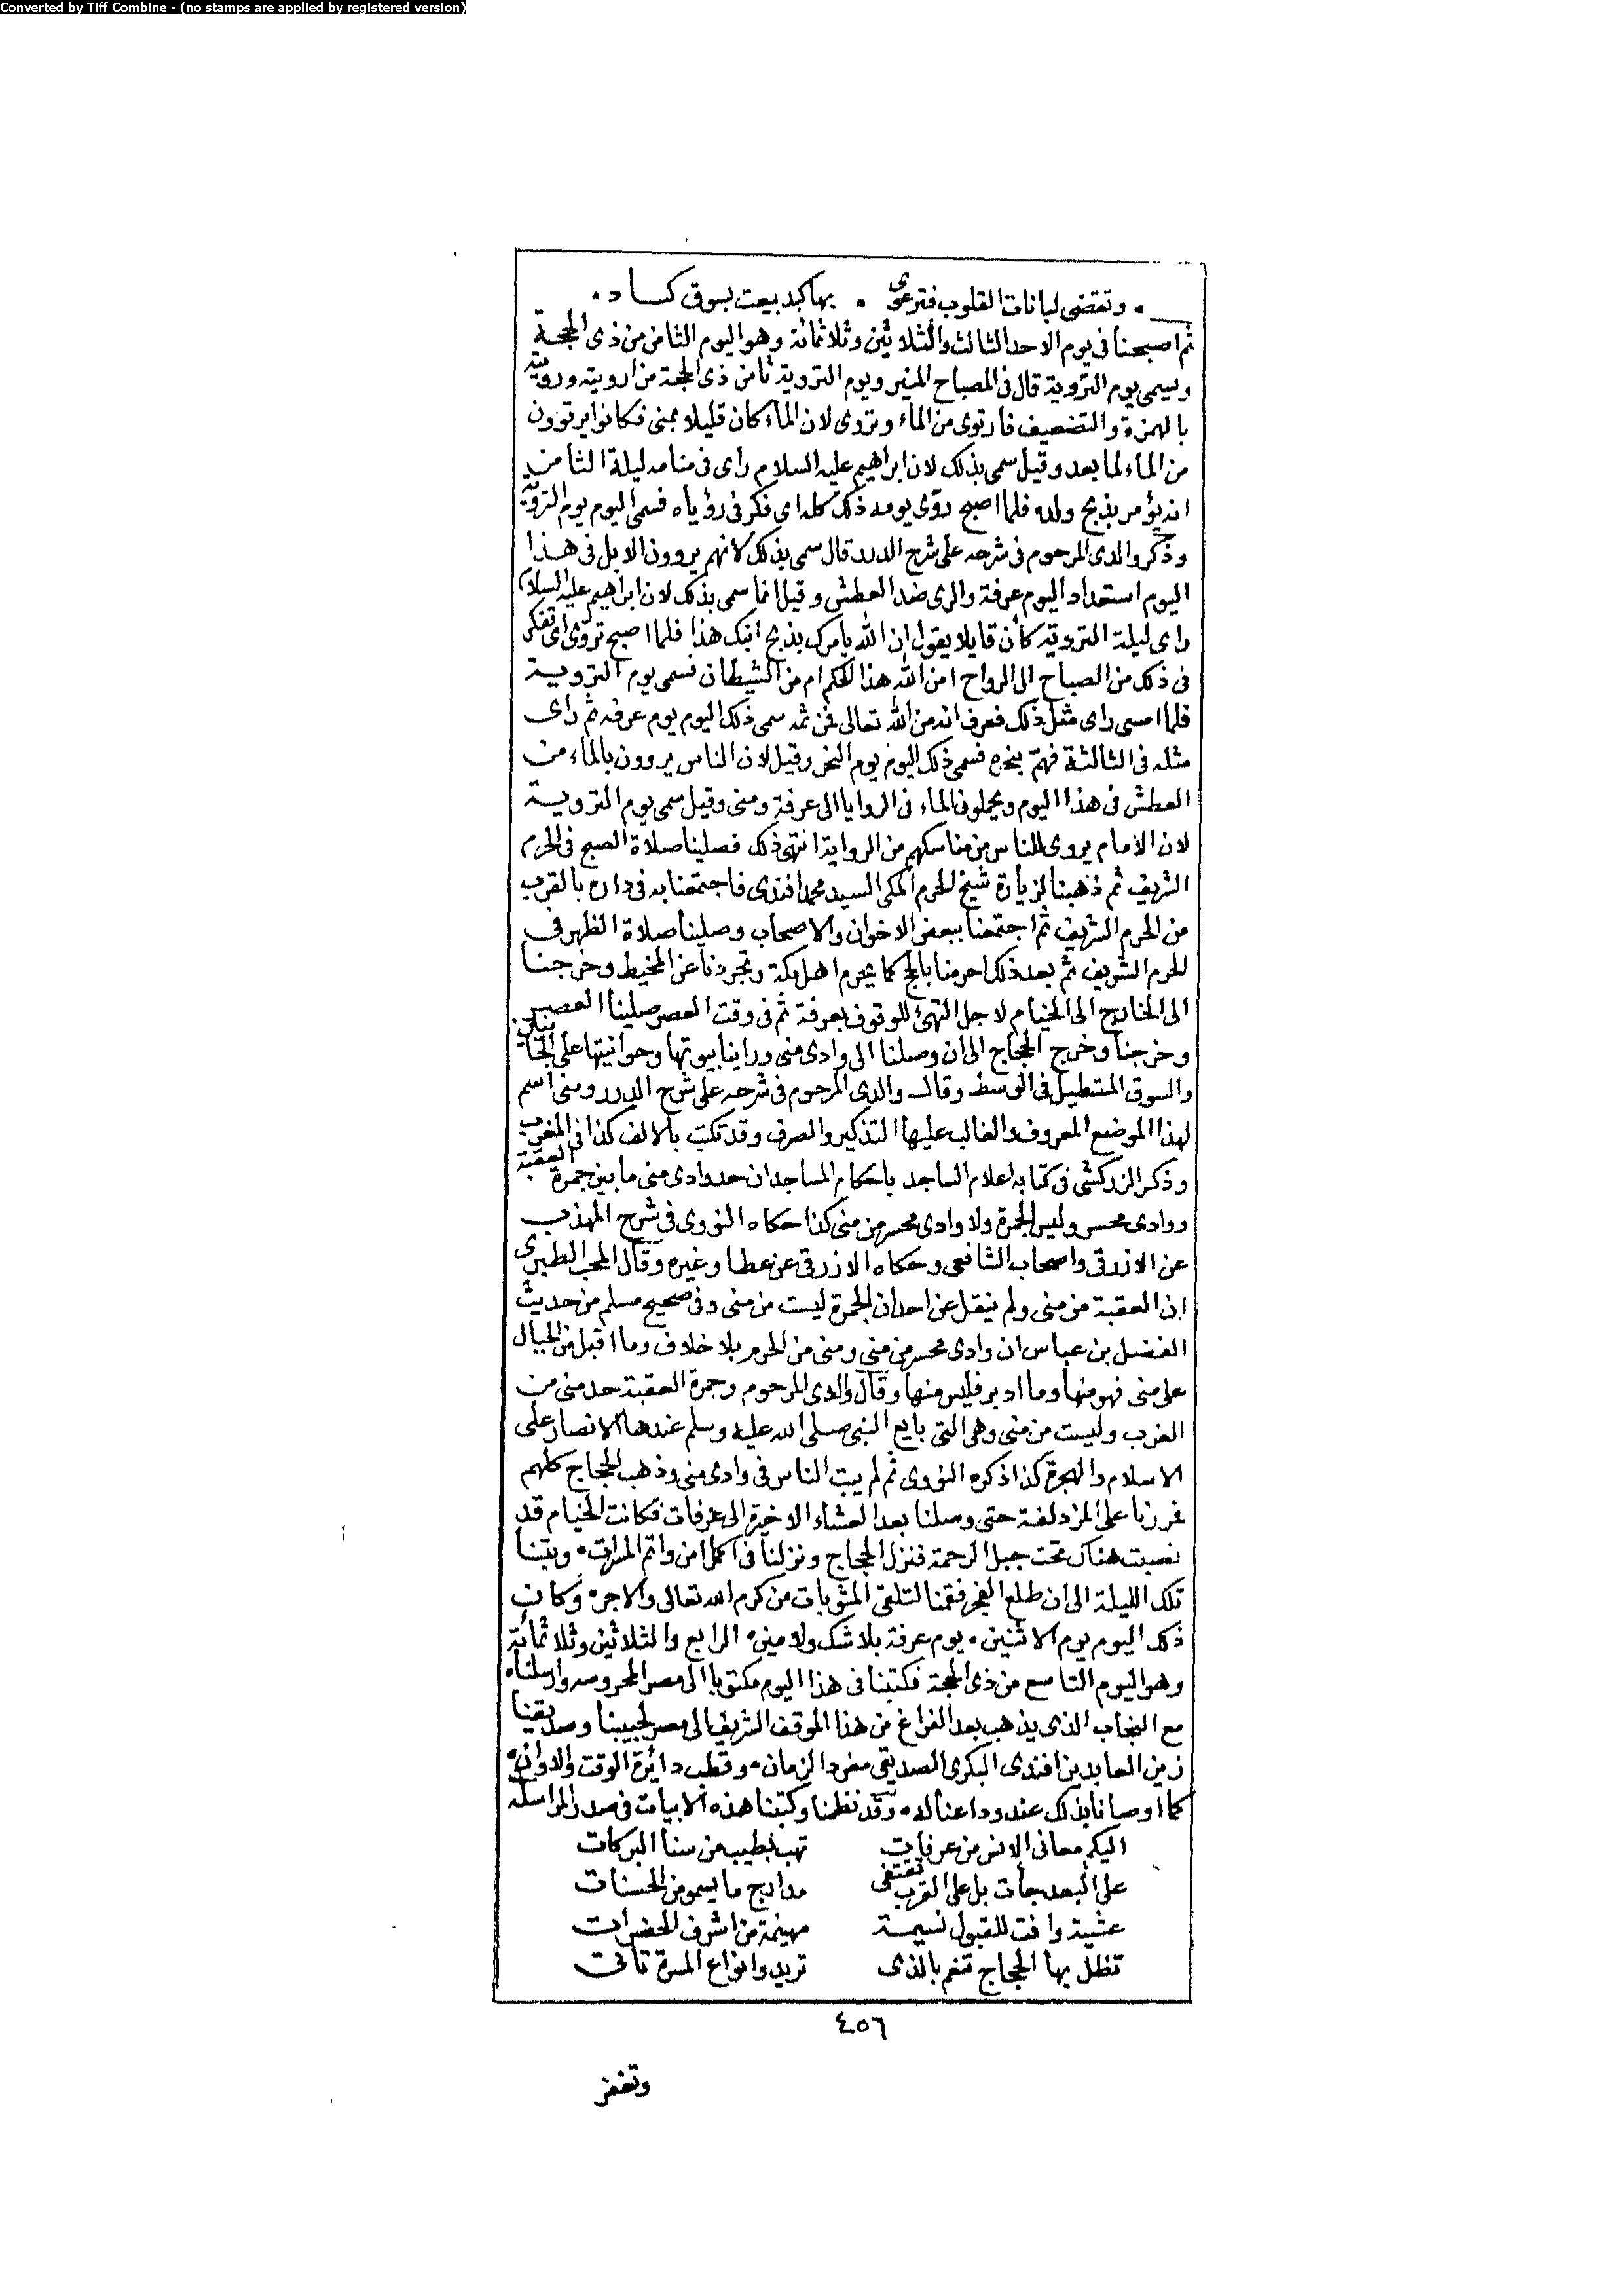 Converted by Tiff Combine - (no stamps are applied by registered version)
وتقضى لبانات القلوب فترعوى • بها كبد بيعت بسوق كساد •
ثم اصبحنا فى يوم الاحد الثالث والثلاثين وثلاثمائة وهو اليوم الثامن من ذى الحجة
ويسمى يوم التروية قال فى المصباح المنير ويوم التروية ثامن ذى الحجة من ارويته ورويته
بالهمزة والتضعيف فارتوى من الماء وتروى لان الماء كان قليلا بمنى فكانوا يرتوون
من الماء لما بعد وقيل سمى بذلك لان ابراهيم عليه السلام راى فى منامه ليلة الثامن
انه يؤمر بذبح ولده فلما اصبح روّى يومه ذلك كله اى فكر فى رؤياه فسمى اليوم يوم التروية
وذكر والدى المرحوم فى شرحه على شرح الدرر قال سمى بذلك لانهم يروون الابل فى هذا
اليوم استعدادا ليوم عرفة والرى ضد العطش وقيل انما سمى بذلك لان ابراهيم عليه السلام
راى ليلة التروية كأن قايلا يقول ان الله يأمرك بذبح ابنك هذا فلما اصبح تروى اى تفكر
فى ذلك من الصباح الى الرواح امن الله هذا الحكم ام من الشيطان فسمى يوم التروية
فلما امسى راى مثل ذلك فعرف انه من الله تعالى فمن ثمه سمى ذلك اليوم يوم عرفه ثم راى
مثله فى الثالثة فهمّ بنحره فسمى ذلك اليوم يوم النحر وقيل لان الناس يروون بالماء من
العطش فى هذا اليوم ويحملون الماء فى الروايا الى عرفة ومنى وقيل سمى يوم التروية
لان الامام يروى للناس من مناسكهم من الرواية انتهى ذلك فصلينا صلاة الصبح فى الحرم
الشريف ثم ذهبنا لزيارة شيخ الحرم المكى السيد محمد افندى فاجتمعنا به فى داره بالقرب
من الحرم الشريف ثم اجتمعنا ببعض الاخوان والاصحاب وصلينا صلاة الظهر فى
الحرم الشريف ثم بعد ذلك احرمنا بالحج كما يحرم اهل مكة وتجردنا عن المخيط وخرجنا
الى الخارج الى الخيام لاجل التهئ للوقوف بعرفة ثم فى وقت العصر صلينا العصر
وخرجنا وخرج الحجاج الى ان وصلنا الى وادى منى وراينا بيوتها وحوانيتها على الجانبين
والسوق المستطيل فى الوسط وقال والدى المرحوم فى شرحه على شرح الدرر ومنى اسم
لهذا الموضع المعروف والغالب عليها التذكير والصرف وقد تكتب بالالف كذا فى المغرب
وذكر الزركشى فى كتابه اعلام الساجد باحكام المساجد ان حد وادى منى ما بين جمرة العقبة
ووادى محسر وليس الجمرة ولا وادى محسر من منى كذا حكاه النووى فى شرح المهذب
عن الازرقى واصحاب الشافعى وحكاه الازرقى عن عطا وغيره وقال المحب الطبرى
ان العقبة من منى ولم ينقل عن احد ان الجمرة ليست من منى وفى صحيح مسلم من حديث
الفضل بن عباس ان وادى محسر من منى ومنى من الحرم بلا خلاف وما اقبل من الجبال
على منى فهو منها وما ادبر فليس منها وقال والدى المرحوم وجمرة العقبة حد منى من
الغرب وليست من منى وهى التى بايع النبى صلى الله عليه وسلم عندها الانصار على
الاسلام والهجرة كذا ذكره النووى ثم لم يبت الناس فى وادى منى وذهب الحجاج كلهم
فمررنا على المزدلفة حتى وصلنا بعد العشاء الاخرة الى عرفات فكانت الخيام قد
نصبت هناك تحت جبل الرحمة فنزل الحجاج ونزلنا فى اكمل امن واتم المسرات • وبتنا
تلك الليلة الى ان طلع الفجر فقمنا لتلقى المثوبات من كرم الله تعالى والاجر • وكان
ذلك اليوم يوم الاثنين • يوم عرفة بلا شك ولا مين • الرابع والثلاثين وثلاثمائة
وهو اليوم التاسع من ذى الحجة فكتبنا فى هذا اليوم مكتوبا الى مصر المحروسه وارسلناه
مع النجاب الذى يذهب بعد الفراغ من هذا الموقف الشريف الى مصر لحبيبنا وصديقنا
زين العابدين افندى البكرى الصديقى مفرد الزمان • وقطب دائرة الوقت والاوان •
كما اوصانا بذلك عند وداعنا له • وقد نظمنا وكتبنا هذه الابيات فى صدر المراسله
اليكم معانى الانس من عرفات تهب بطيب من سنا البركات
على البعد جاءت بل على القرب تقتفى مدارج ما يسمو من الحسنات
عشية وافت للقبول نسيمة مهينمة من اشرف الحضرات
تظل بها الحجاج تنعم بالذى تريد وانواع المسرة تاتى
٤٥٦
وتغفر